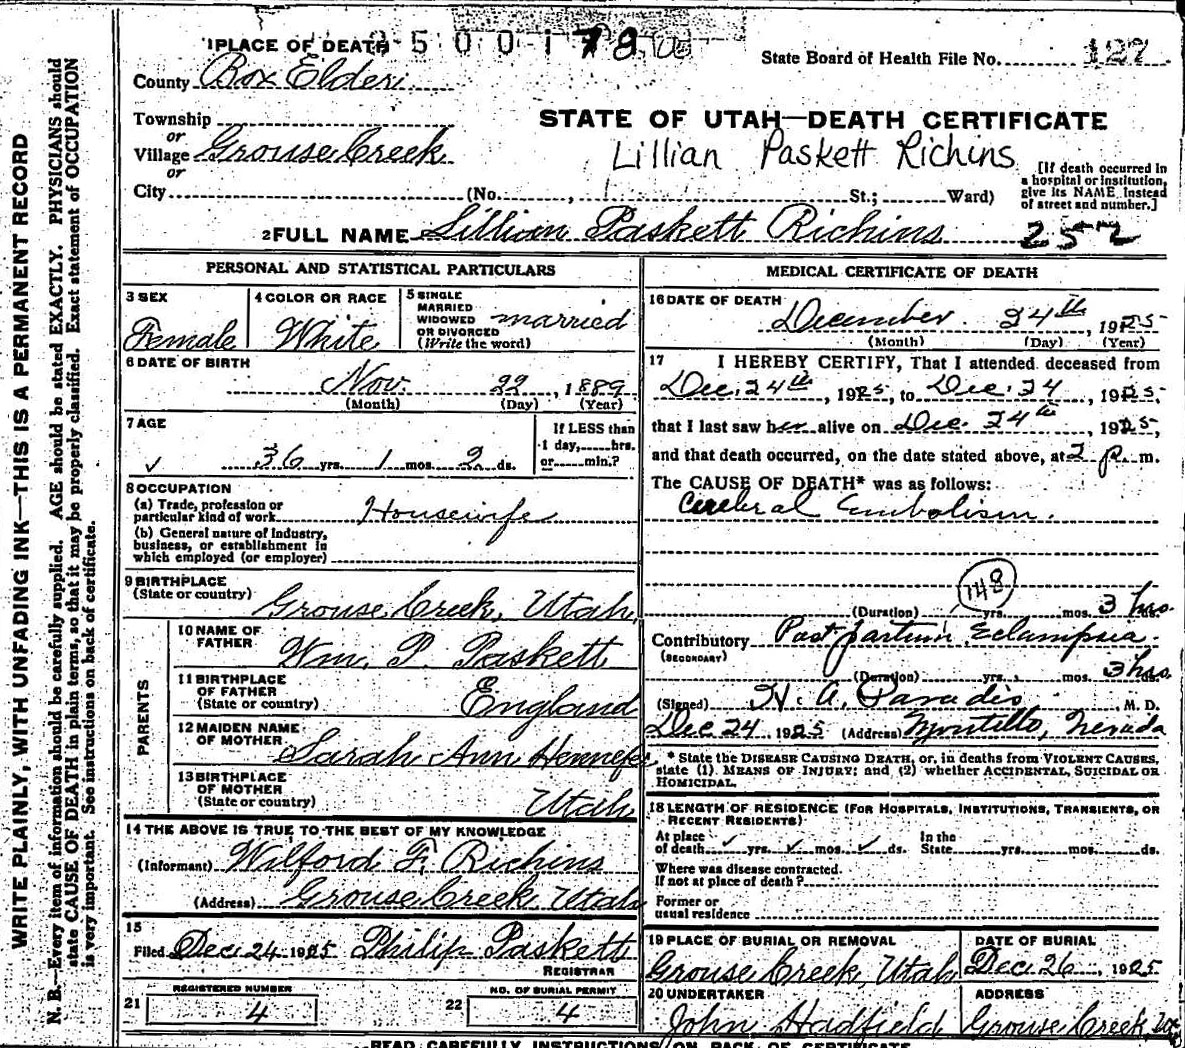 WRITE PLAINLY, WITH UNFADING INK—THIS IS A PERMANENT RECORD
N. B.—Every item of information should be carefully supplied. AGE should be stated EXACTLY. PHYSICIANS should
state CAUSE OF DEATH in plain terms, so that it may be properly classified. Exact statement of OCCUPATION
is very important. See instructions on back of certificate.
1 PLACE OF DEATH
State Board of Health File No. 127
County Box Elder
STATE OF UTAH—DEATH CERTIFICATE
Township
or
Village Grouse Creek
Lillian Paskett Richins
or
City (No. , St.; Ward)
[If death occurred in
a hospital or institution,
give its NAME instead
of street and number.]
2 FULL NAME Lillian Paskett Richins
252
PERSONAL AND STATISTICAL PARTICULARS
3 SEX
Female
4 COLOR OR RACE
White
5 SINGLE
MARRIED
WIDOWED
OR DIVORCED
(Write the word)
married
6 DATE OF BIRTH
Nov. 22, 1889
(Month) (Day) (Year)
7 AGE
36 yrs. 1 mos. 2 ds.
If LESS than
1 day, hrs.
or min.?
8 OCCUPATION
(a) Trade, profession or
particular kind of work Housewife
(b) General nature of Industry,
business, or establishment in
which employed (or employer)
9 BIRTHPLACE
(State or country) Grouse Creek, Utah,
PARENTS
10 NAME OF
FATHER Wm. P. Paskett
11 BIRTHPLACE
OF FATHER
(State or country) England
12 MAIDEN NAME
OF MOTHER Sarah Ann Hennefer
13 BIRTHPLACE
OF MOTHER
(State or country) Utah
14 THE ABOVE IS TRUE TO THE BEST OF MY KNOWLEDGE
(Informant) Wilford F. Richins
(Address) Grouse Creek Utah
15
Filed Dec 24 1925 Philip Paskett
REGISTRAR
21 REGISTERED NUMBER 4
22 NO. OF BURIAL PERMIT 4
MEDICAL CERTIFICATE OF DEATH
16 DATE OF DEATH
December 24th, 1925
(Month) (Day) (Year)
17 I HEREBY CERTIFY, That I attended deceased from
Dec. 24th, 1925, to Dec. 24, 1925,
that I last saw her alive on Dec. 24th, 1925,
and that death occurred, on the date stated above, at 2 p. m.
The CAUSE OF DEATH* was as follows:
Cerebral Embolism.
148
(Duration) yrs. mos. 3 hrs.
Contributory Post partum Eclampsia.
(SECONDARY)
(Duration) yrs. mos. 3 hrs.
(Signed) H. A. Paradis, M. D.
Dec 24 1925 (Address) Montello, Nevada
* State the DISEASE CAUSING DEATH, or, in deaths from VIOLENT CAUSES,
state (1) MEANS OF INJURY; and (2) whether ACCIDENTAL, SUICIDAL OR
HOMICIDAL.
18 LENGTH OF RESIDENCE (FOR HOSPITALS, INSTITUTIONS, TRANSIENTS, OR
RECENT RESIDENTS)
At place
of death yrs. mos. ds.
In the
State yrs. mos. ds.
Where was disease contracted.
If not at place of death?
Former or
usual residence
19 PLACE OF BURIAL OR REMOVAL
Grouse Creek, Utah
DATE OF BURIAL
Dec. 26, 1925
20 UNDERTAKER
John Hadfield
ADDRESS
Grouse Creek,
READ CAREFULLY INSTRUCTIONS ON BACK OF CERTIFICATE